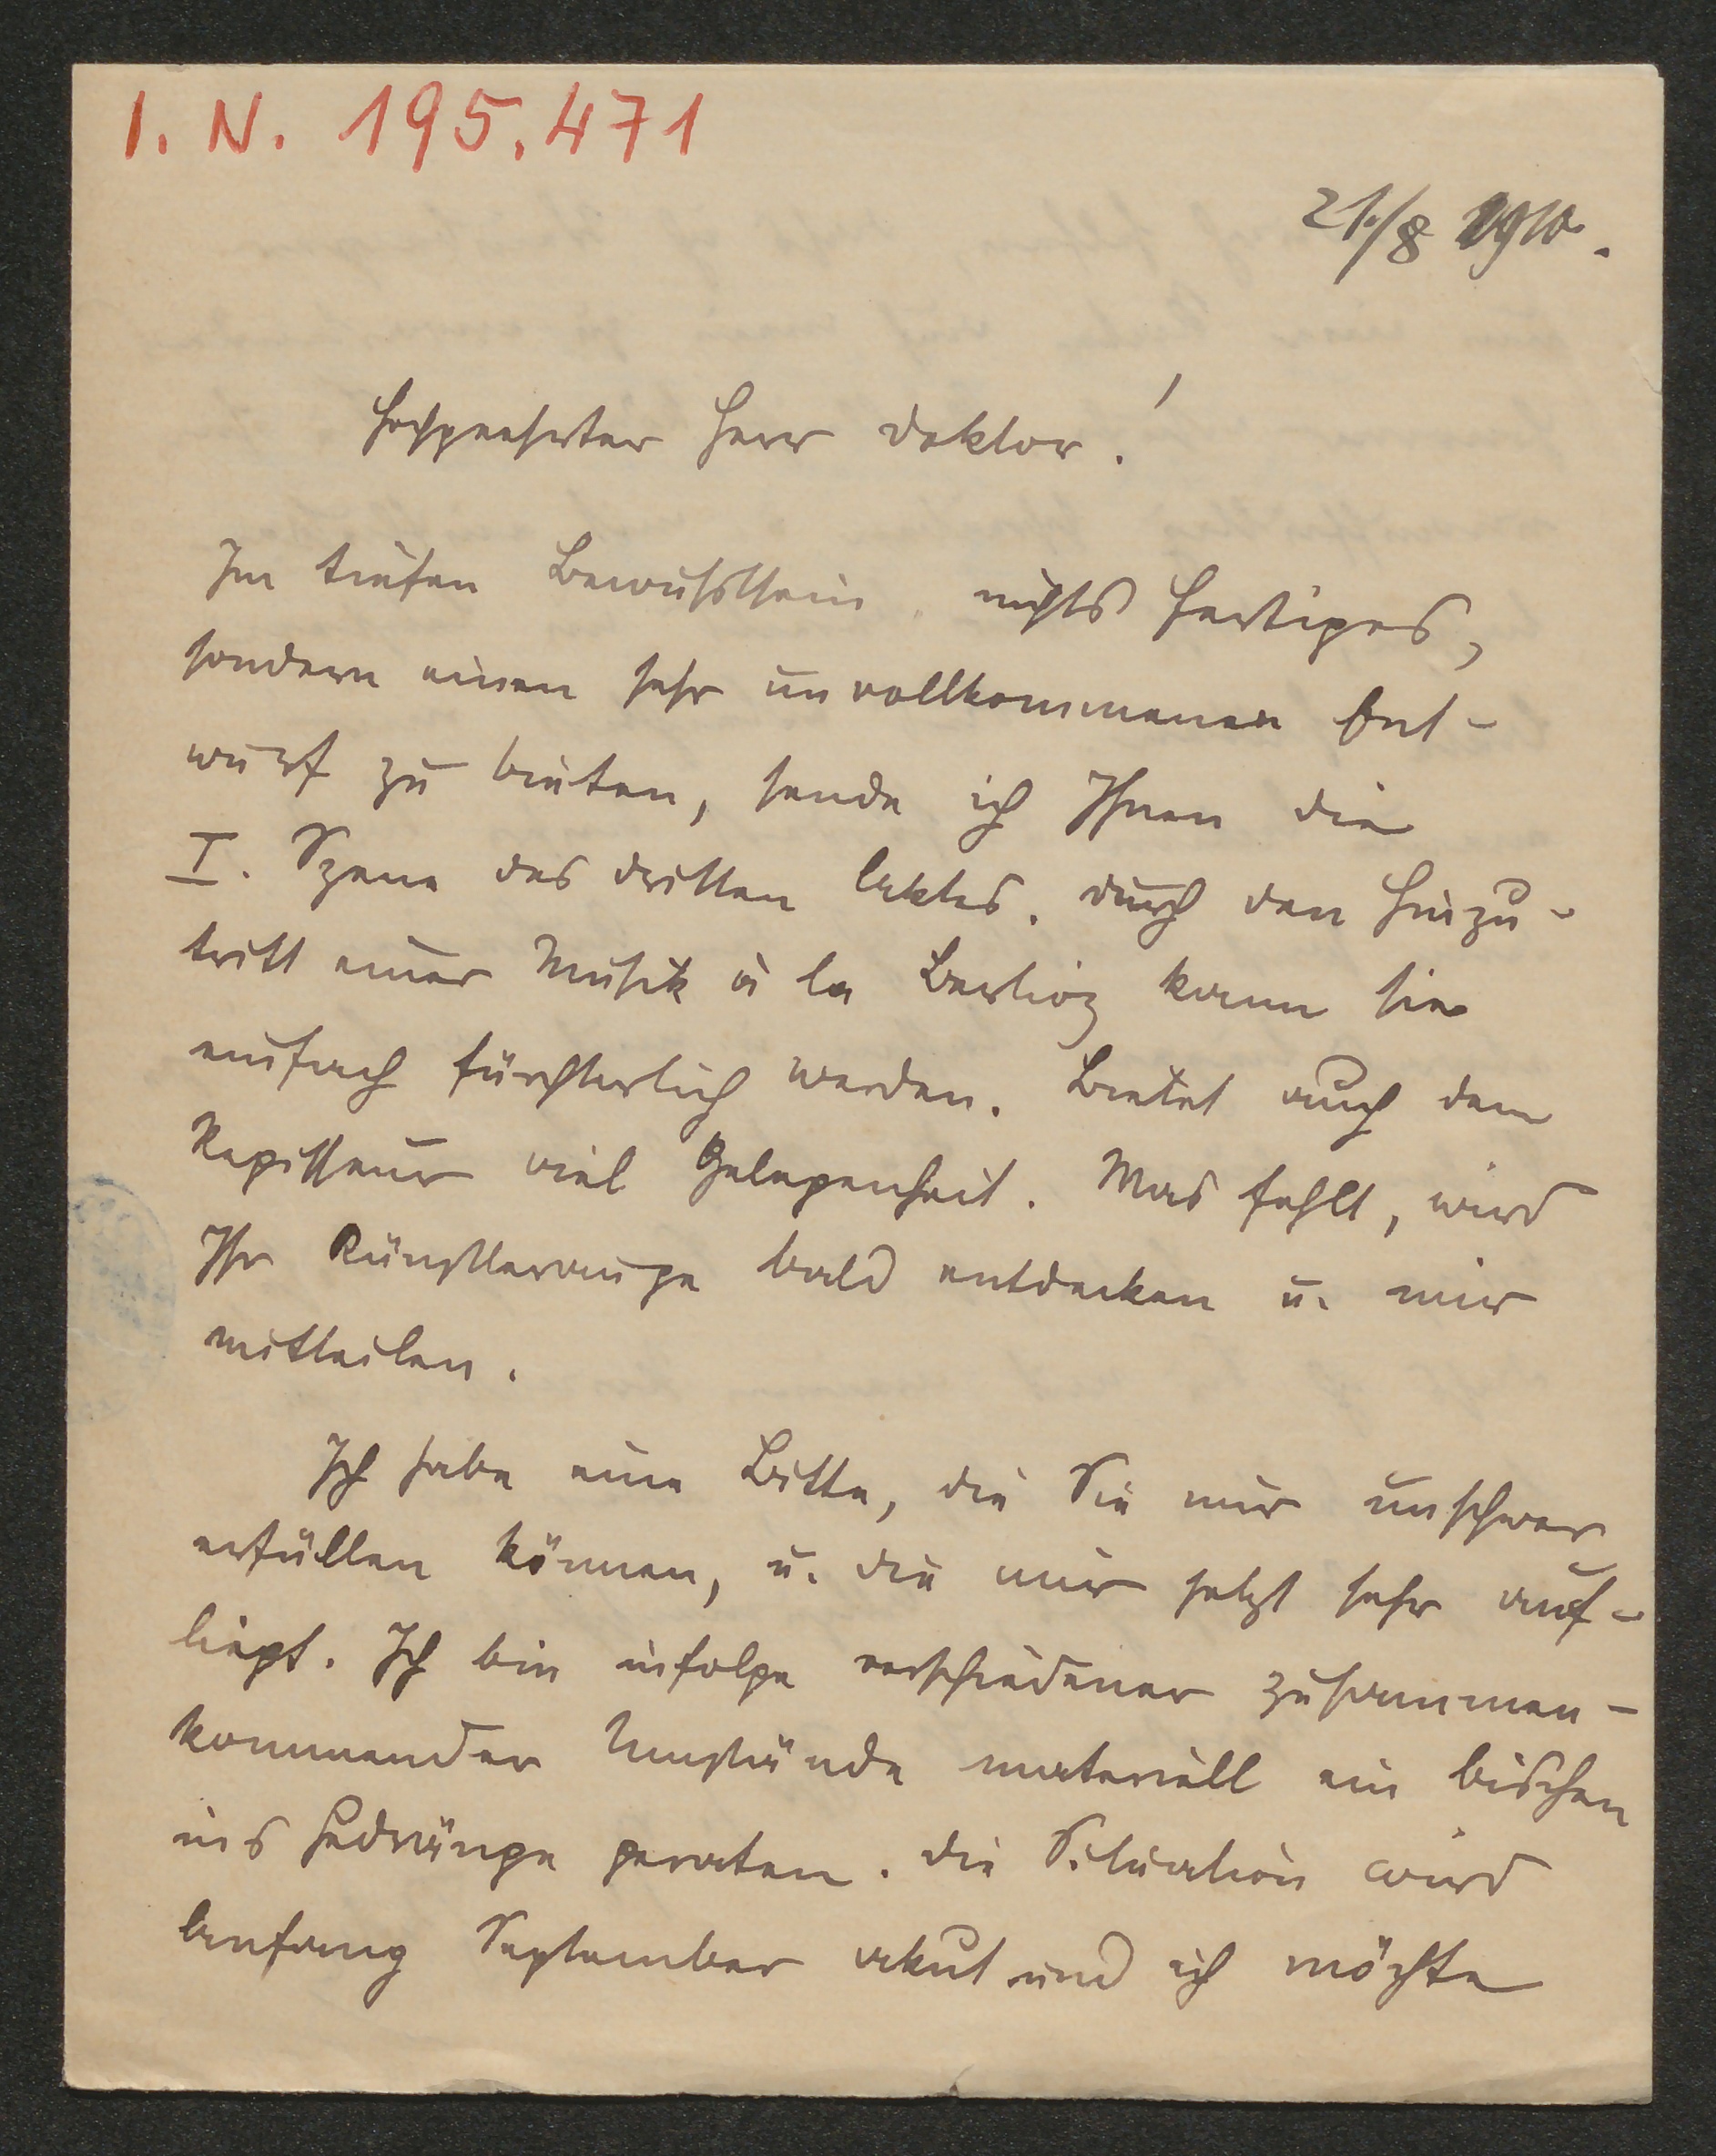 I. N. 195.471
21./8 1910.
Hochgeehrter Herr Doktor!
Im tiefen Bewußtsein nichts Fertiges,
sondern einen sehr unvollkommenen Ent-
wurf zu bieten, sende ich Ihnen die
I. Szene des dritten Aktes. Durch den Hinzu-
tritt einer Musik à la Berlioz kann sie
einfach fürchterlich werden. Bietet auch dem
Regisseur viel Gelegenheit. Was fehlt, wird
Ihr Künstlerauge bald entdecken u. mir
mitteilen.
Ich habe eine Bitte, die Sie mir unschwer
erfüllen können, u. die mir jetzt sehr auf-
liegt. Ich bin infolge verschiedener zusammen-
kommender Umstände materiell ein bischen
ins Gedränge geraten. Die Situation wird
Anfang September akut und ich möchte